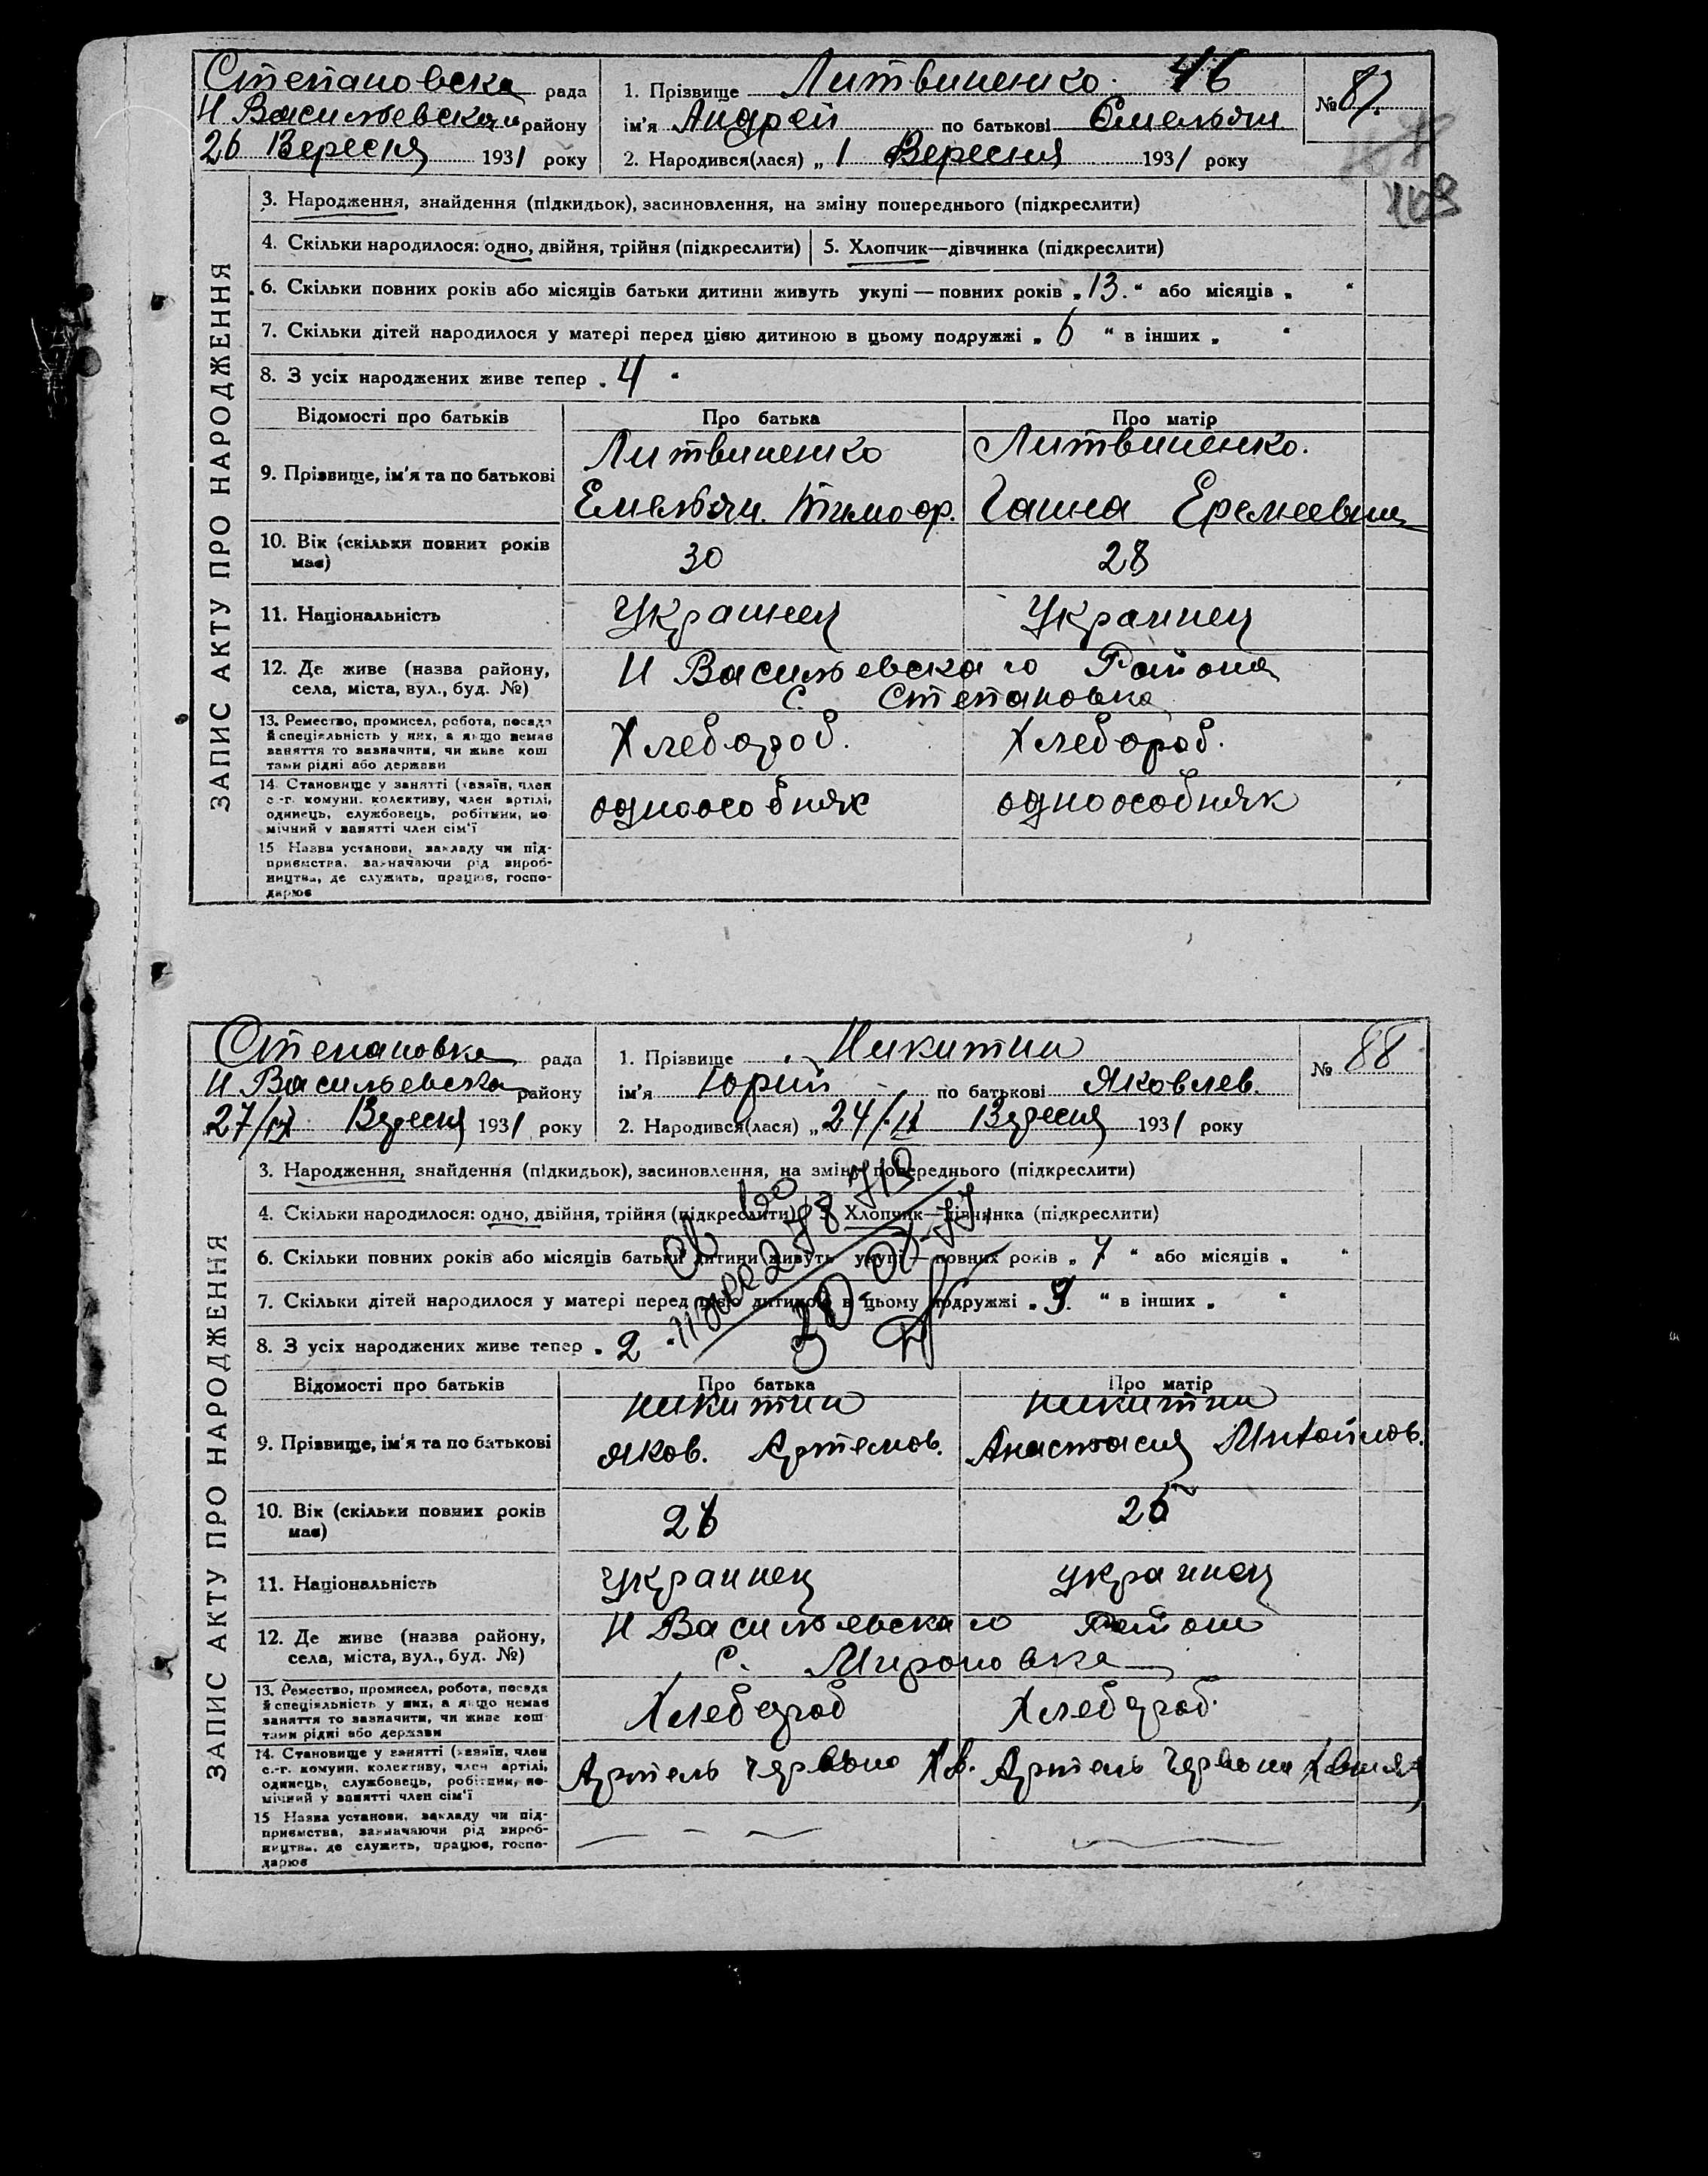 Степановска рада
Н Васильевскаи району
26 Вересня 1931 року
1. Прізвище Литвиненко. 46
ім'я Андрей по батькові Емельян.
2. Народився(лася) „ 1 Вересня 1931 року
№ 87.
169
ЗАПИС АКТУ ПРО НАРОДЖЕННЯ
3. Народження, знайдення (підкидьок), засиновлення, на зміну попереднього (підкреслити)
4. Скільки народилося: одно, двійня, трійня (підкреслити) 5. Хлопчик—дівчинка (підкреслити)
6. Скільки повних років або місяців батьки дитини живуть укупі — повних років „ 13. “ або місяців „ “
7. Скільки дітей народилося у матері перед цією дитиною в цьому подружжі „ 6 “ в інших „ “
8. З усіх народжених живе тепер „ 4 “
Відомості про батьків Про батька Про матір
9. Прізвище, ім'я та по батькові
Литвиненко Литвиненко.
Емельян. Тимоф. Ганна Еремеевна
10. Вік (скільки повних років має) 30 28
11. Національність Украинец Украинец
12. Де живе (назва району, села, міста, вул., буд. №)
Н Васильевскаго Района
с. Степановка
13. Ремество, промисел, робота, посада
й спеціяльність у них, а якщо немає
заняття то зазначити, чи живе кош
тами рідні або держави
Хлебороб. Хлебороб.
14. Становище у занятті (хазяїн, член
с.-г. комуни, колективу, член артілі,
одинець, службовець, робітник, по
мічний у занятті член сім'ї
одноособняк одноособняк
15 Назва установи, закладу чи під-
приємства, зазначаючи рід вироб-
ництва, де служить, працює, госпо-
дарює
Степановка рада
Н Васильевска району
27/IX Вересня 1931 року
1. Прізвище Никитин
ім'я Юрий по батькові Яковлев.
2. Народився(лася) „ 24/IX Вересня 1931 року
№ 88
ЗАПИС АКТУ ПРО НАРОДЖЕННЯ
3. Народження, знайдення (підкидьок), засиновлення, на зміну попереднього (підкреслити)
4. Скільки народилося: одно, двійня, трійня (підкреслити) 5. Хлопчик—дівчинка (підкреслити)
6. Скільки повних років або місяців батьки дитини живуть укупі — повних років „ 7 “ або місяців „ “
7. Скільки дітей народилося у матері перед цією дитиною в цьому подружжі „ “ в інших „ “
8. З усіх народжених живе тепер „ 2 “
Відомості про батьків Про батька Про матір
9. Прізвище, ім'я та по батькові
никитин никитин
Яков. Артемов. Анастасия Михайлов.
10. Вік (скільки повних років має) 26 26
11. Національність украинец украинец
12. Де живе (назва району, села, міста, вул., буд. №)
Н Васильевскаго Района
с. Мироновка
13. Ремество, промисел, робота, посада
й спеціяльність у них, а якщо немає
заняття то зазначити, чи живе кош
тами рідні або держави
Хлебороб Хлебороб.
14. Становище у занятті (хазяїн, член
с.-г. комуни, колективу, член артілі,
одинець, службовець, робітник, по-
мічний у занятті член сім'ї
Артель червона Хв. Артель червона Хвиля
15 Назва установи, закладу чи під-
приємства, зазначаючи рід вироб-
ництва, де служить, працює, госпо-
дарює